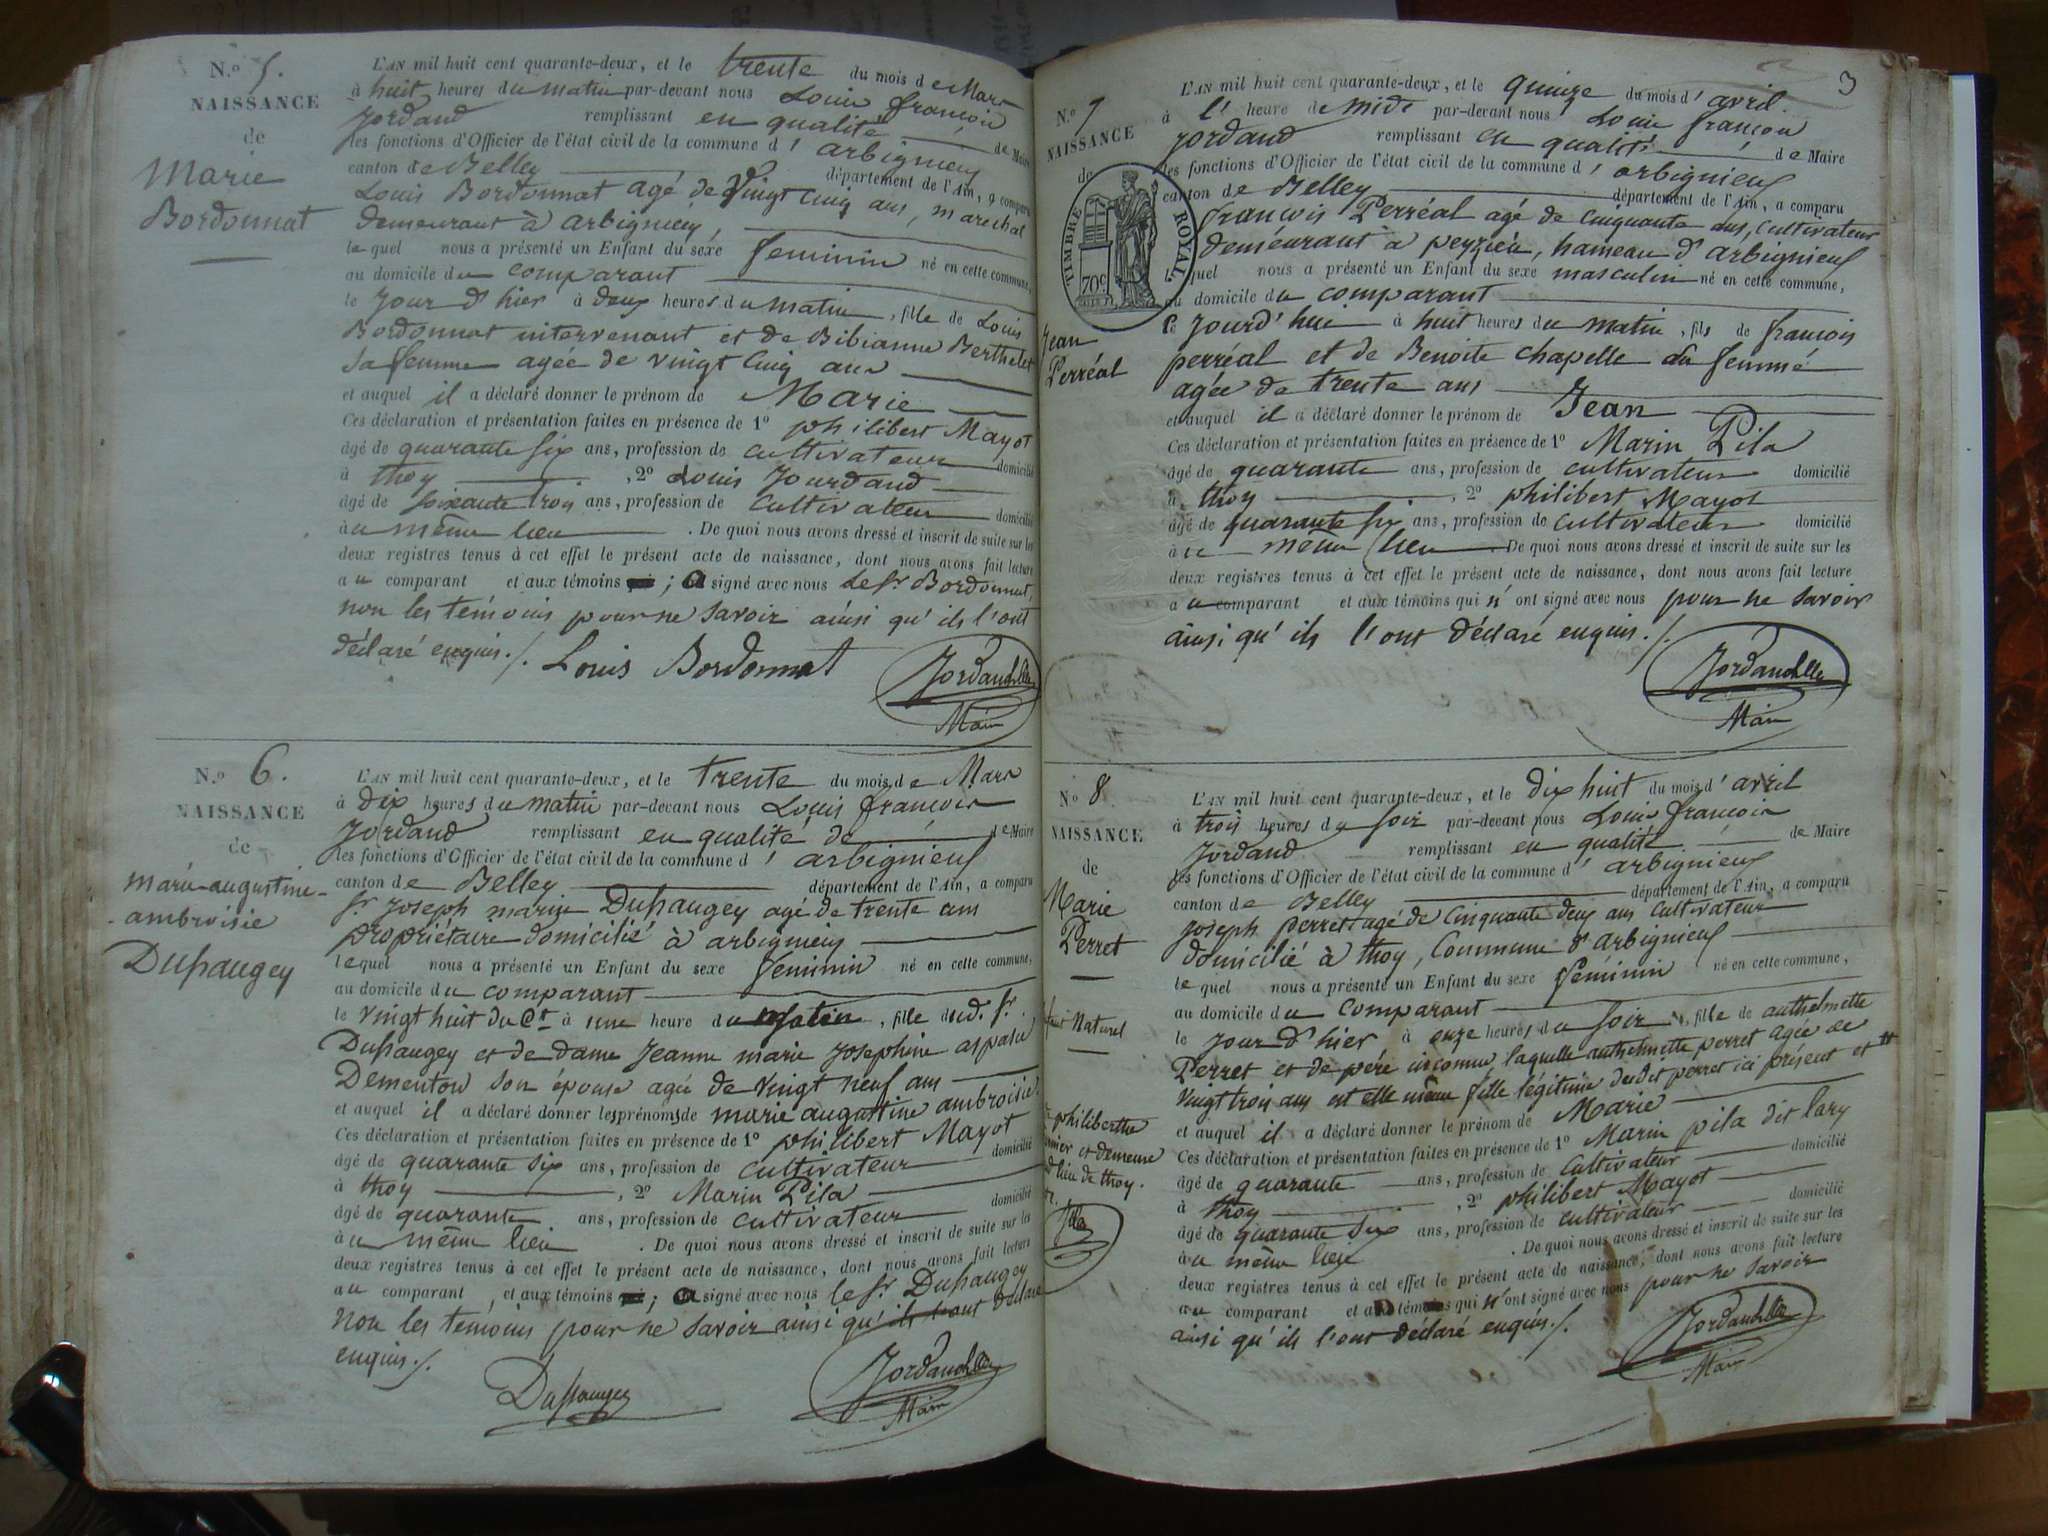 N.º 5.
NAISSANCE
de
Marie
Bordonnat
L'AN mil huit cent quarante-deux, et le trente du mois de Mars
à huit heures du matin par-devant nous Louis françois
Jordand remplissant en qualité de Maire
les fonctions d'Officier de l'état civil de la commune d' arbignieu
canton de Belley département de l'Ain, a comparu
Louis Bordonnat agé de Vingt cinq ans, marechal
demeurant à arbignieu,
le quel nous a présenté un Enfant du sexe feminin né en cette commune,
au domicile du comparant
le jour d'hier à deux heures du matin, fille de Louis
Bordonnat intervenant et de Bibianne Berthelet
sa femme agée de vingt cinq ans
et auquel il a déclaré donner le prénom de Marie
Ces déclaration et présentation faites en présence de 1º philibert Mayot
âgé de quarante six ans, profession de cultivateur domicilié
à thoy , 2º Louis Jourdand
âgé de soixante trois ans, profession de cultivateur domicilié
au même lieu . De quoi nous avons dressé et inscrit de suite sur les
deux registres tenus à cet effet le présent acte de naissance, dont nous avons fait lecture
au comparant et aux témoins ; a signé avec nous le sr. Bordonnat,
non les témoins pour ne savoir ainsi qu'ils l'ont
déclaré enquis ./.
Louis Bordonnat
Jordand
Maire
N.º 6.
NAISSANCE
de
marie-augustine-
ambroisie
Dussaugey
L'AN mil huit cent quarante-deux, et le trente du mois de Mars
à dix heures du matin par-devant nous Louis françois
Jordand remplissant en qualité de de Maire
les fonctions d'Officier de l'état civil de la commune d' arbignieu
canton de Belley département de l'Ain, a comparu
sr. Joseph marin Dussaugey agé de trente ans
propriétaire domicilié à arbignieu
le quel nous a présenté un Enfant du sexe feminin né en cette commune,
au domicile du comparant
le vingt huit du Ct. à une heure du matin, fille dud. sr.
Dussaugey et de dame Jeanne marie Josephine aspasie
Dementou son épouse agée de vingt neuf ans
et auquel il a déclaré donner les prénoms de marie augustine ambroisie.
Ces déclaration et présentation faites en présence de 1º philibert Mayot
âgé de quarante six ans, profession de cultivateur domicilié
à thoy , 2º Marin Pila
âgé de quarante ans, profession de cultivateur domicilié
au même lieu . De quoi nous avons dressé et inscrit de suite sur les
deux registres tenus à cet effet le présent acte de naissance, dont nous avons fait lecture
au comparant et aux témoins ; a signé avec nous le sr. Dussaugey
Non les témoins pour ne savoir ainsi qu'ils l'ont déclaré
enquis ./.
Dussaugey
Jordand
Maire
3
N.º 7
NAISSANCE
de
TIMBRE ROYAL
70c
Jean
Perréal
L'AN mil huit cent quarante-deux, et le quinze du mois d' avril
à l' heure de midi par-devant nous Louis françois
Jordand remplissant en qualité de Maire
les fonctions d'Officier de l'état civil de la commune d' arbignieu
canton de Belley département de l'Ain, a comparu
françois Perréal agé de cinquante ans, cultivateur
demeurant à peyzieu, hameau d'arbignieu
quel nous a présenté un Enfant du sexe masculin né en cette commune,
au domicile du comparant
ce jourd'hui à huit heures du matin, fils de francois
perréal et de Benoite chapelle sa femme
agée de trente ans
et auquel il a déclaré donner le prénom de Jean
Ces déclaration et présentation faites en présence de 1º Marin Pila
âgé de quarante ans, profession de cultivateur domicilié
à thoy , 2º philibert Mayot
âgé de quarante six ans, profession de cultivateur domicilié
au même lieu . De quoi nous avons dressé et inscrit de suite sur les
deux registres tenus à cet effet le présent acte de naissance, dont nous avons fait lecture
au comparant et aux témoins qui n'ont signé avec nous pour ne savoir
ainsi qu'ils l'ont déclaré enquis ./.
Jordand
Maire
Nº 8
NAISSANCE
de
Marie
Perret
Naturel
philiberthe
et demeure
lieu de thoy.
L'AN mil huit cent quarante-deux, et le dix huit du mois d' avril
à trois heures du soir par-devant nous Louis françois
Jordand remplissant en qualité de Maire
les fonctions d'Officier de l'état civil de la commune d' arbignieu
canton de Belley département de l'Ain, a comparu
Joseph perret agé de cinquante deux ans cultivateur
domicilié à thoy, Commune d'arbignieu
le quel nous a présenté un Enfant du sexe féminin né en cette commune,
au domicile du comparant
le jour d'hier à onze heures du soir, fille de anthelmette
Perret et de père inconnu laquelle anthelmette perret agée de
vingt trois ans est elle même fille légitime dudit perret ici présent et
et auquel il a déclaré donner le prénom de Marie
Ces déclaration et présentation faites en présence de 1º Marin pila dit lary
âgé de quarante ans, profession de cultivateur domicilié
à thoy , 2º philibert Mayot
âgé de quarante six ans, profession de cultivateur domicilié
au même lieu . De quoi nous avons dressé et inscrit de suite sur les
deux registres tenus à cet effet le présent acte de naissance, dont nous avons fait lecture
au comparant et aux témoins qui n'ont signé avec nous pour ne savoir
ainsi qu'ils l'ont déclaré enquis ./.
Jordand
Maire